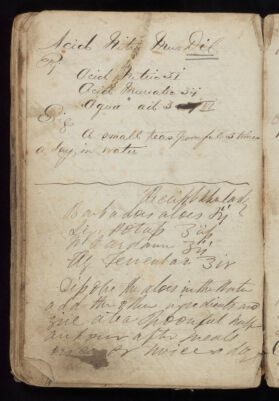 Acid Nitro Mur Dil
℞
Acid Nitric ʒi
Acid Muriatic ʒij
Aqua ad ℥ VI
Sig
A small teaspoonful 3 times
a day, in water
Barbados aloes ʒij
Liq Potass ʒiij
Cardam ʒij
ʒiv
Dissolve the aloes in the Water
add the other ingredients and
give a tea spoonful half
an hour after meals
once or twice a day